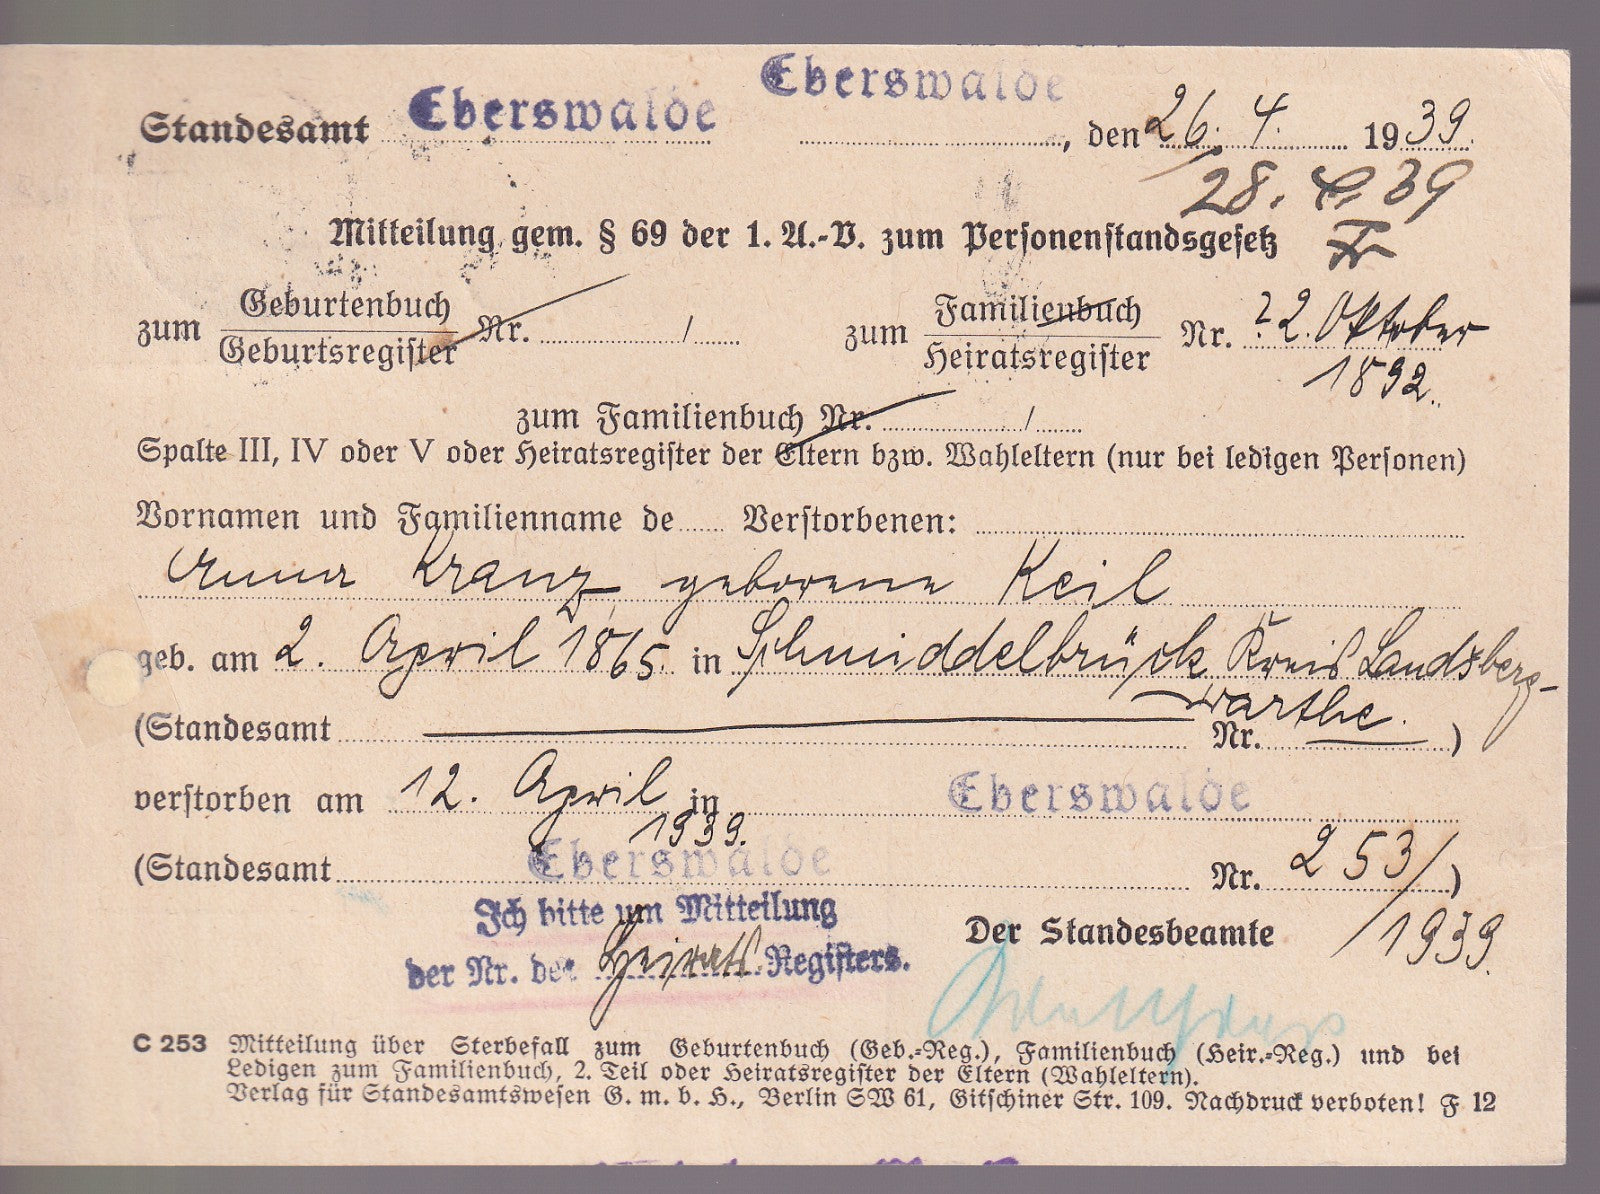 Eberswalde
Standesamt Eberswalde, den 26. 4. 1939
28. 4. 39
Mitteilung gem. § 69 der 1. A.-V. zum Personenstandsgesetz
zum Geburtenbuch / Geburtsregister Nr. / zum Familienbuch / Heiratsregister Nr. ? 2. Oktober
1892.
zum Familienbuch Nr. /
Spalte III, IV oder V oder Heiratsregister der Eltern bzw. Wahleltern (nur bei ledigen Personen)
Vornamen und Familienname de Verstorbenen:
Anna Kranz, geborene Keil
geb. am 2. April 1865. in Schmiddelbrück Kreis Landsberg-
warthe.
(Standesamt Nr. )
verstorben am 12. April in Eberswalde
1939.
(Standesamt Eberswalde Nr. 253/)
1939.
Ich bitte um Mitteilung
Der Standesbeamte
der Nr. des Heirats-Registers.
C 253 Mitteilung über Sterbefall zum Geburtenbuch (Geb.-Reg.), Familienbuch (Heir.-Reg.) und bei
Ledigen zum Familienbuch, 2. Teil oder Heiratsregister der Eltern (Wahleltern).
Verlag für Standesamtswesen G. m. b. H., Berlin SW 61, Gitschiner Str. 109. Nachdruck verboten! F 12